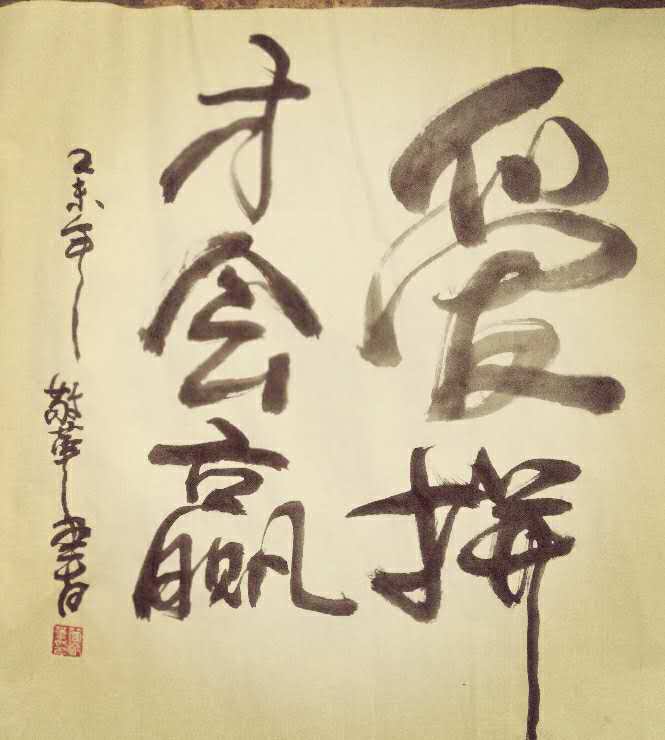 爱拼
才会赢
乙未年 敬华书